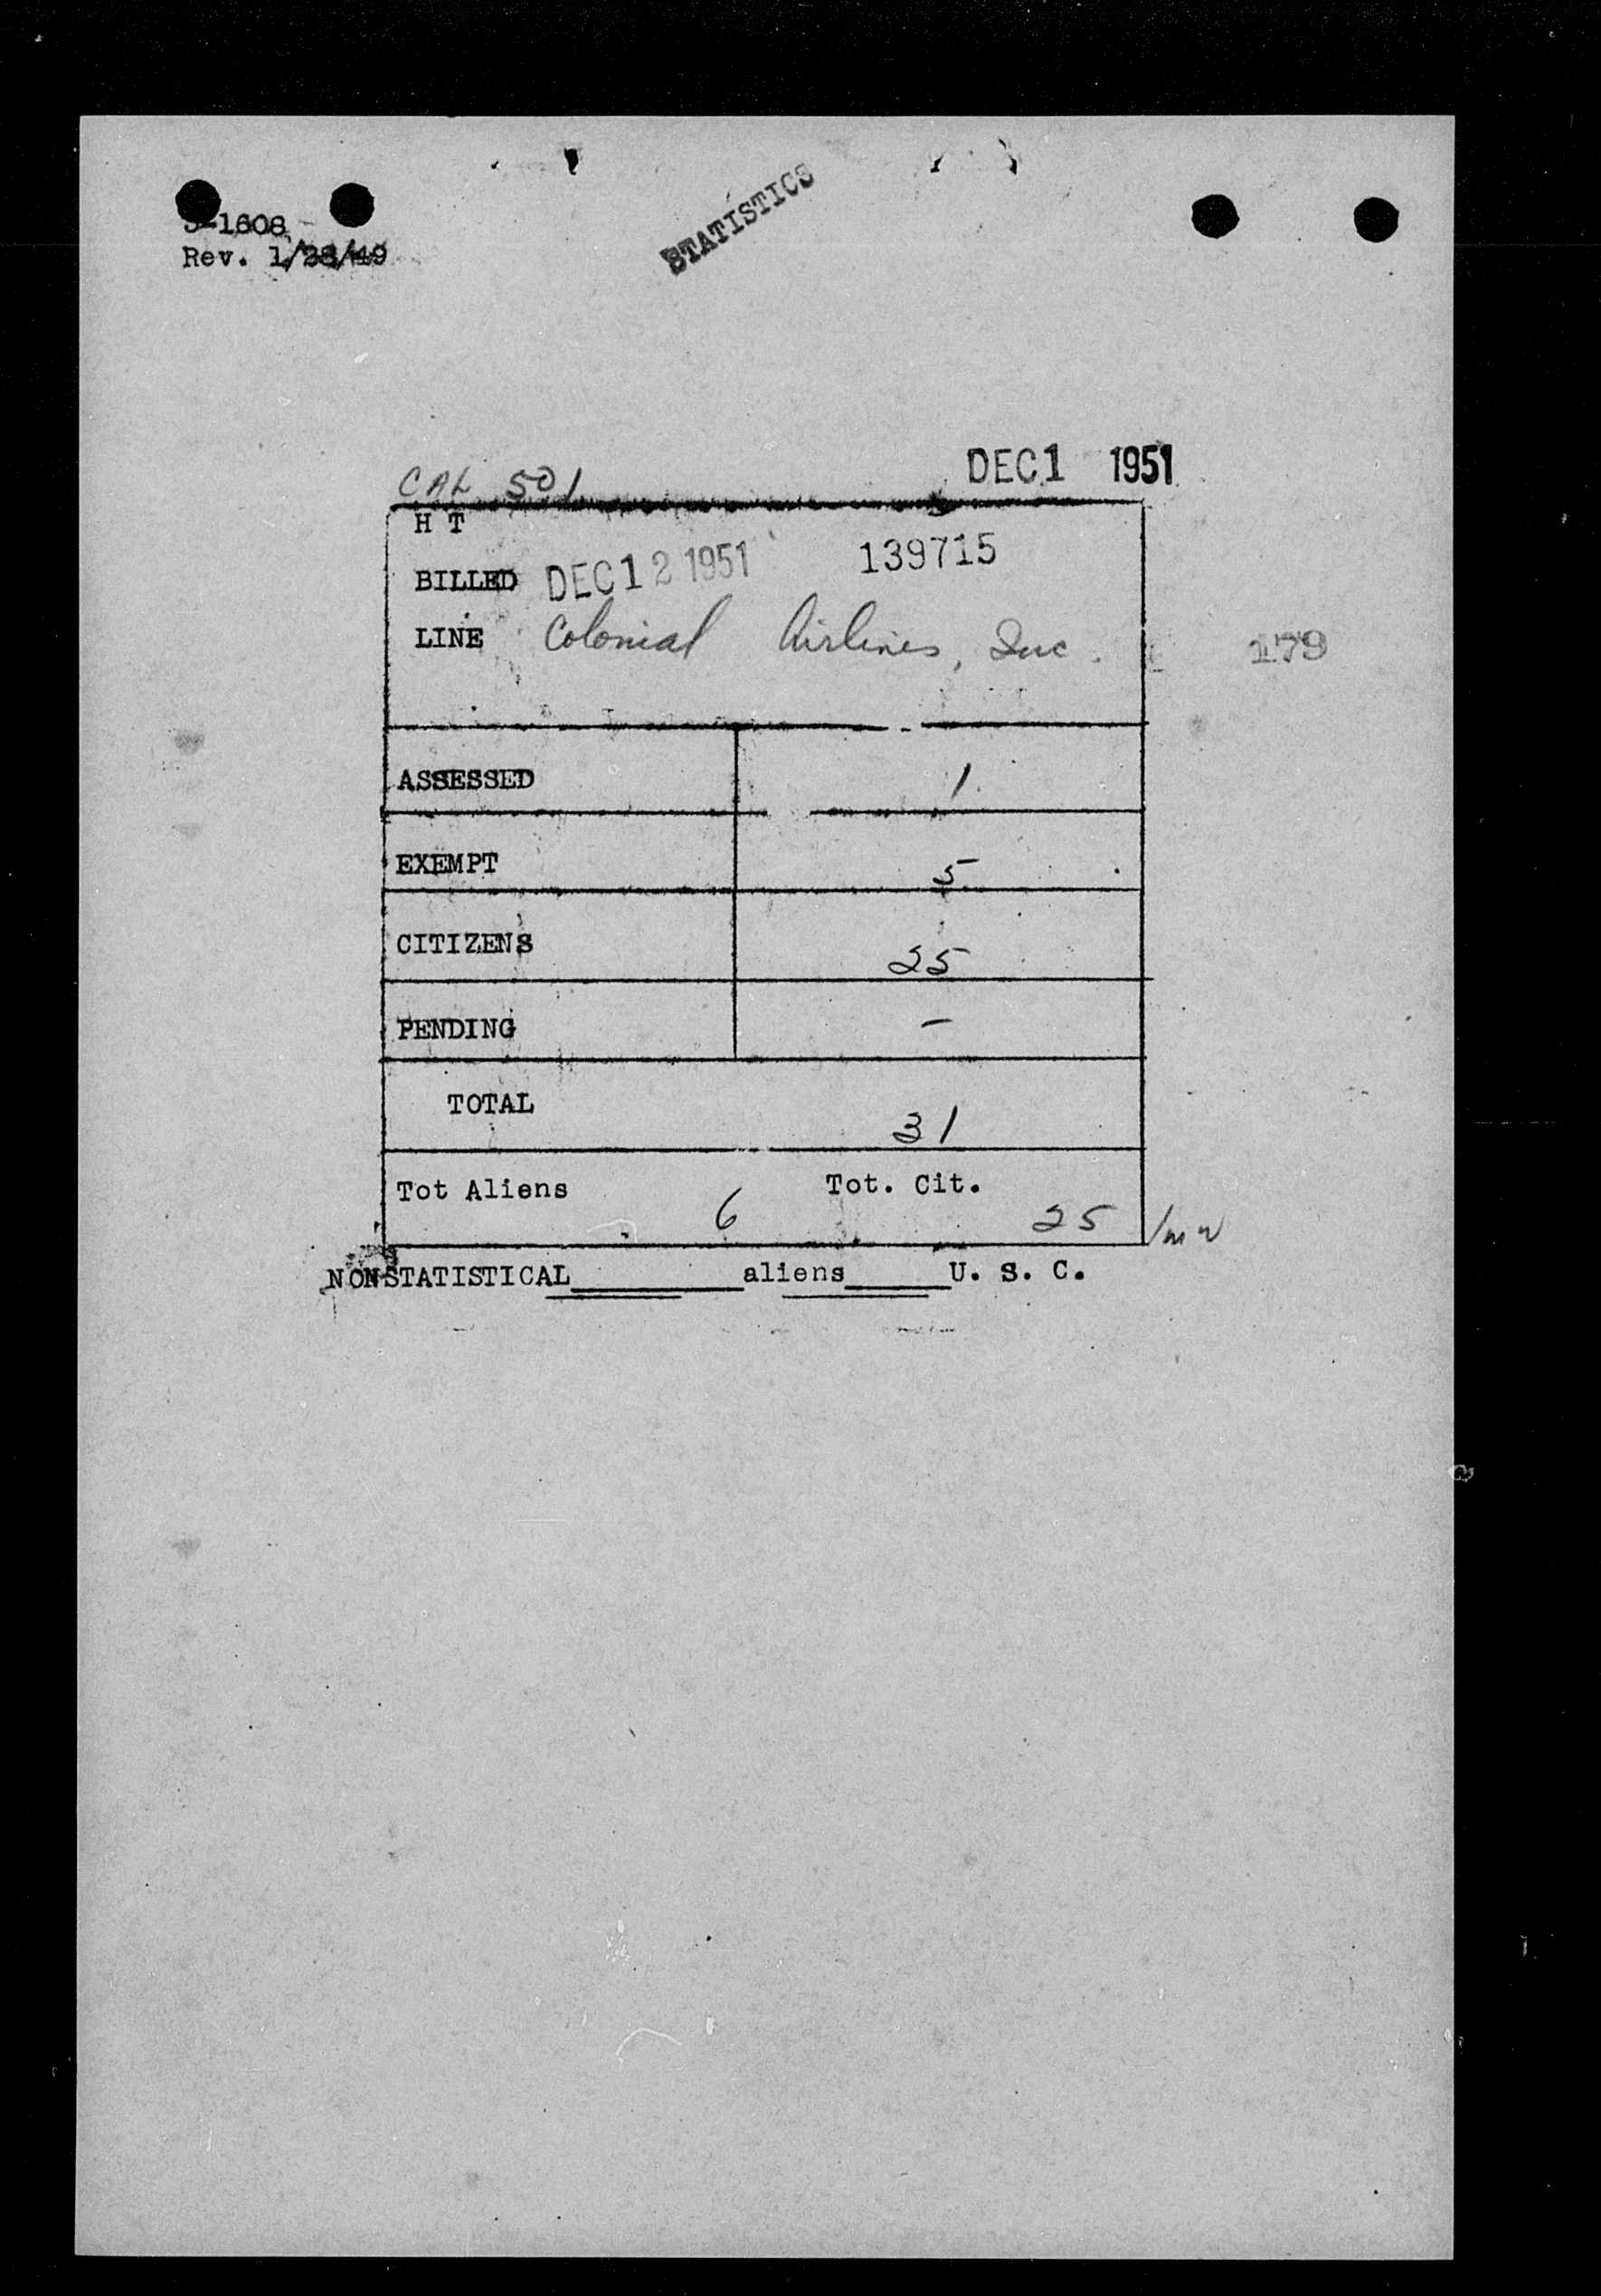 STATISTICS
-1608
Rev. 1/28/49
DEC 1 1951
CAL 501
H T
BILLED DEC 12 1951 139715
LINE Colonial Airlines, Inc.
179
ASSESSED 1
EXEMPT 5
CITIZENS 25
PENDING -
TOTAL 31
Tot Aliens 6 Tot. Cit. 25
NONSTATISTICAL______aliens____U. S. C.